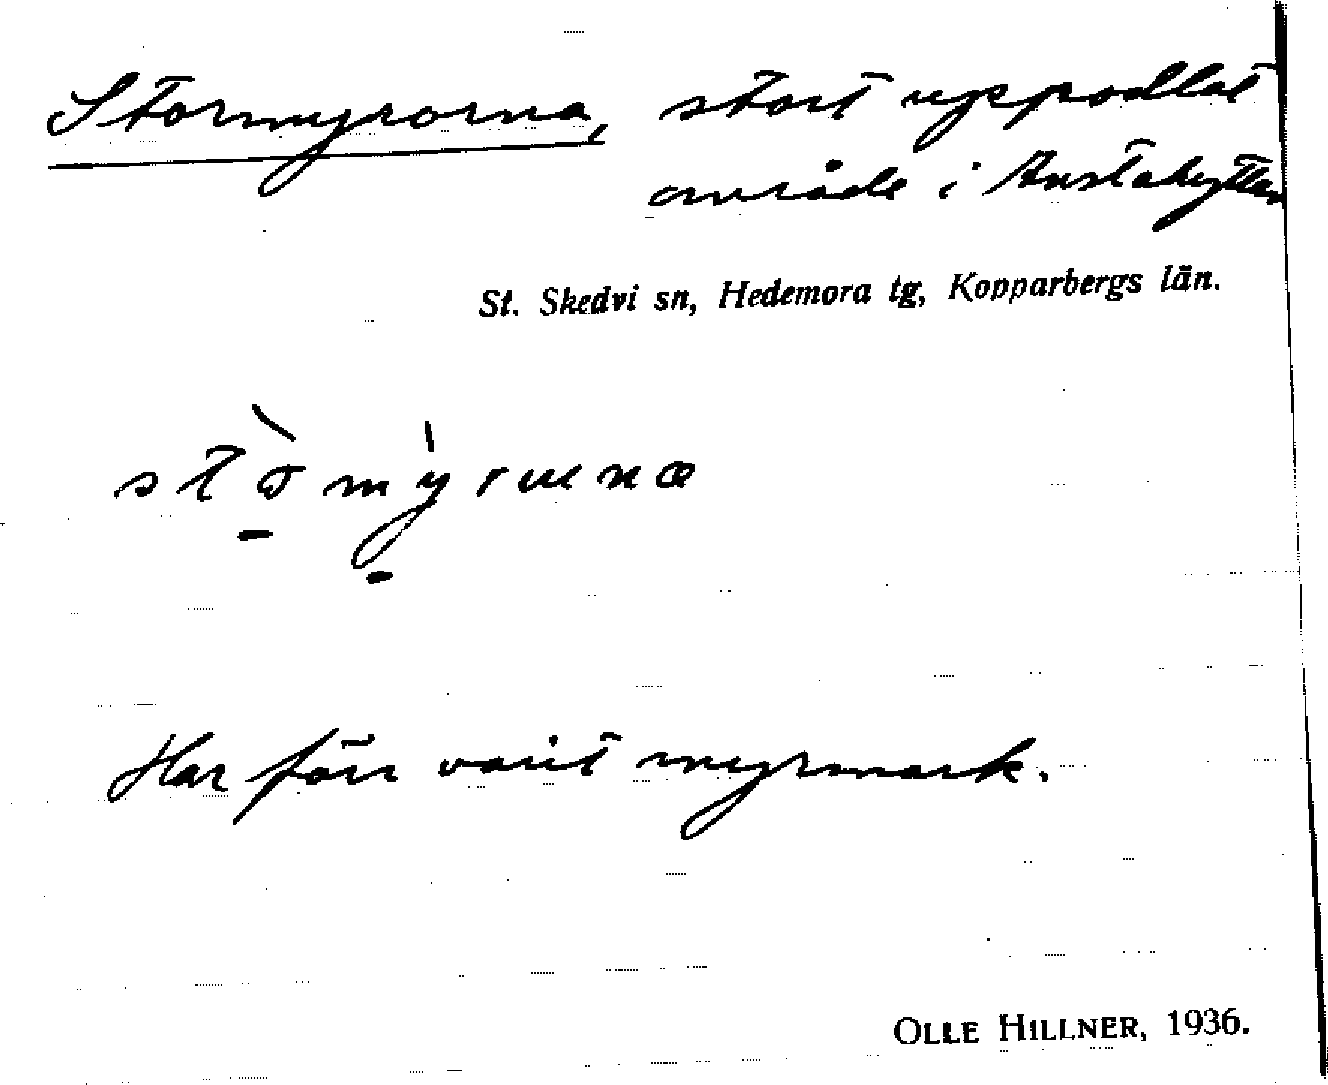 Stormyrorna, stort uppodlat
område i Anstahyttan
St. Skedvi sn, Hedemora tg, Kopparbergs län.
Har förr varit myrmark.
OLLE HILLNER, 1936.